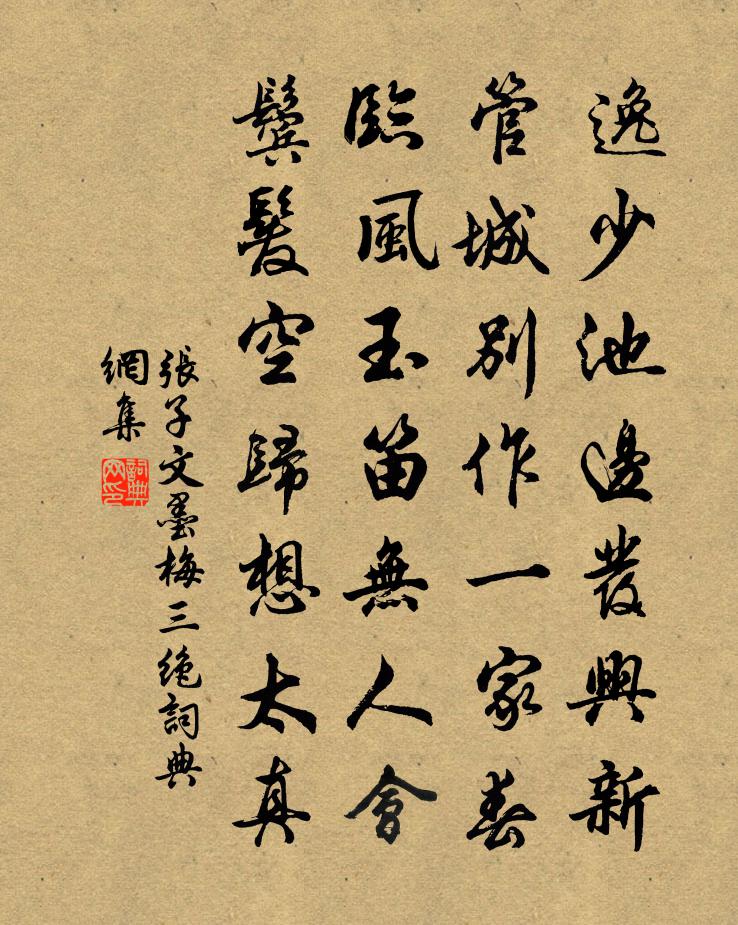 逸少池邊發興新
管城別作一家春
臨風玉笛無人會
鬢髮空歸想太真
張子文墨梅三絶詞典
網集
詞典
网印